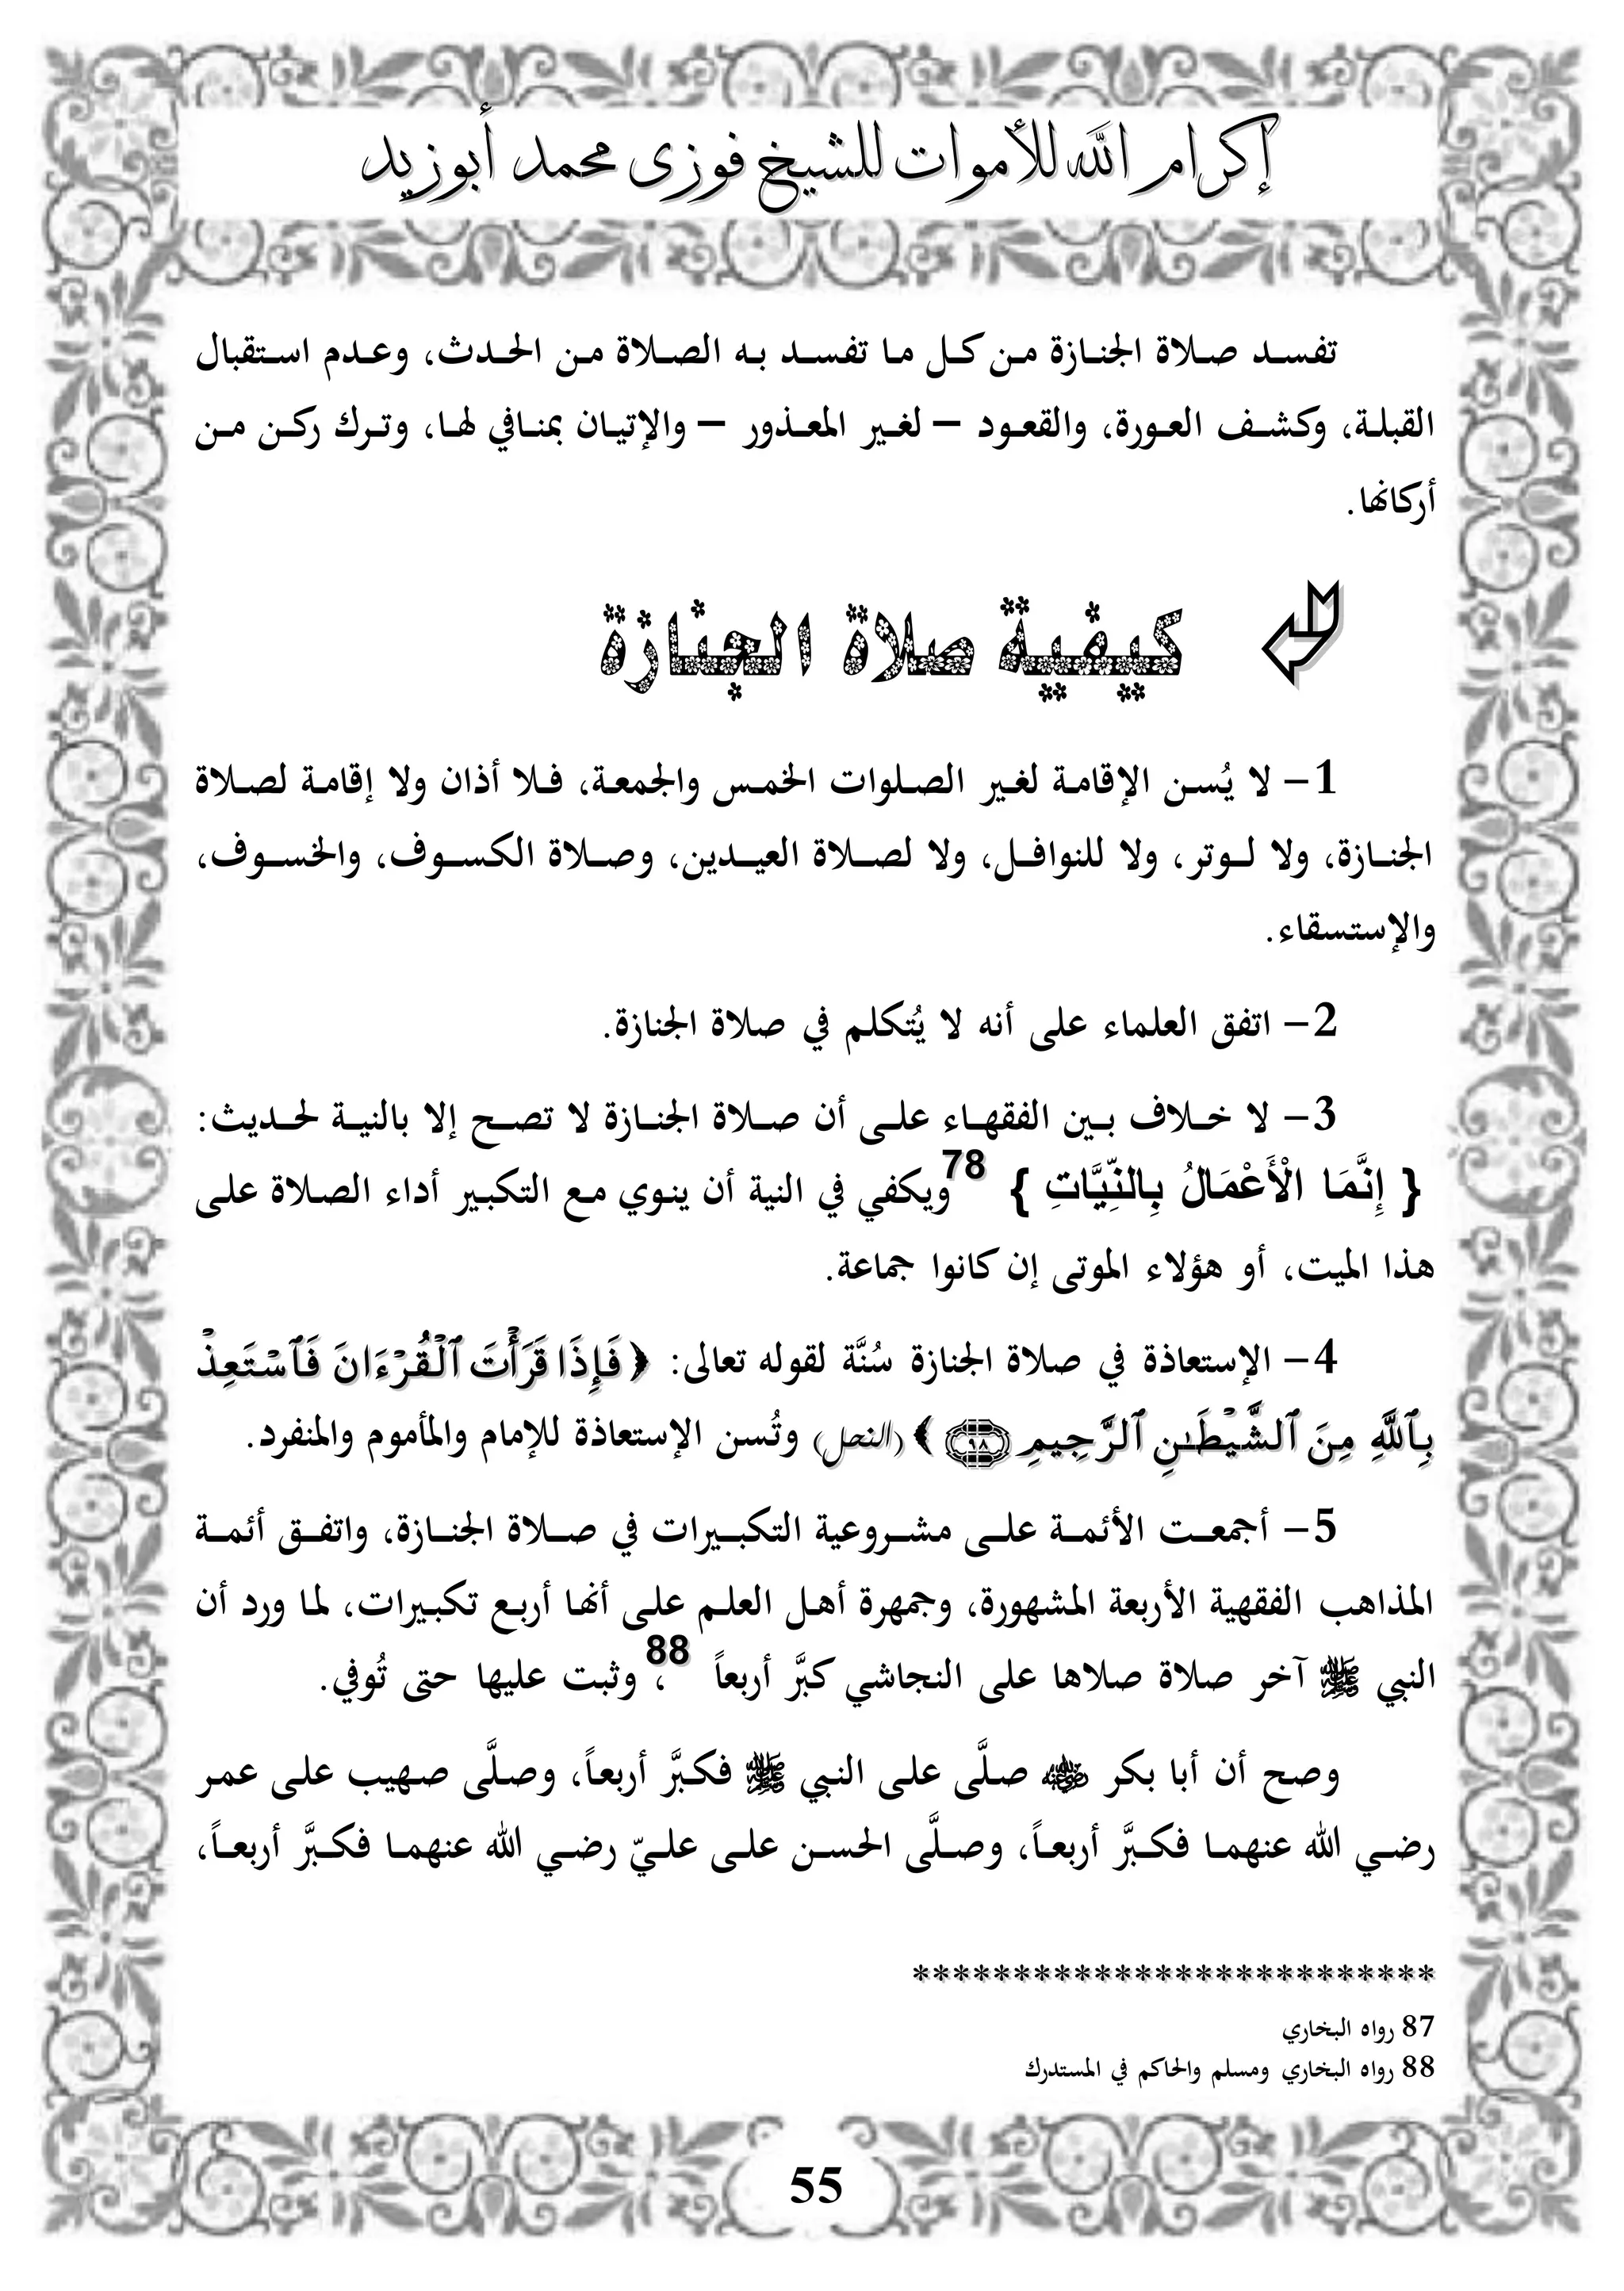 إكرام الله للأموات للشيخ فوزى محمد أبوزيد
تفسد صلاة الجنازة من كل ما تفسد به الصلاة من الحدث، وعدم استقبال
القبلة، وكشف العورة، والقعود – لغير المعذور – والإتيان بمنافي لها، وترك ركن من
أركانها.
كيفية صلاة الجنازة
1- لا يُسن الإقامة لغير الصلوات الخمس والجمعة، فلا أذان ولا إقامة لصلاة
الجنازة، ولا لوتر، ولا للنوافل، ولا لصلاة العيدين، وصلاة الكسوف، والخسوف،
والإستسقاء.
2- اتفق العلماء على أنه لا يُتكلم في صلاة الجنازة.
3- لا خلاف بين الفقهاء على أن صلاة الجنازة لا تصح إلا بالنية لحديث:
{ إِنَّمَا الْأَعْمَالُ بِالنِّيَّاتِ } 78 ويكفي في النية أن ينوي مع التكبير أداء الصلاة على
هذا الميت، أو هؤلاء الموتى إن كانوا جماعة.
4- الإستعاذة في صلاة الجنازة سُنَّة لقوله تعالى: ﴿ فَإِذَا قَرَأْتَ ٱلْقُرْءَانَ فَٱسْتَعِذْ
بِٱللَّهِ مِنَ ٱلشَّيْطَـٰنِ ٱلرَّجِيمِ ۝١٨ ﴾ (النحل) وتُسن الإستعاذة للإمام والمأموم والمنفرد.
5- أجمعت الأئمة على مشروعية التكبيرات في صلاة الجنازة، واتفق أئمة
المذاهب الفقهية الأربعة المشهورة، وجمهرة أهل العلم على أنها أربع تكبيرات، لما ورد أن
النبي ﷺ آخر صلاة صلاها على النجاشي كبَّر أربعاً 88، وثبت عليها حتى تُوفي.
وصح أن أبا بكر رضي الله عنه صلَّى على النبي ﷺ فكبَّر أربعاً، وصلَّى صهيب على عمر
رضي الله عنهما فكبَّر أربعاً، وصلَّى الحسن على عليّ رضي الله عنهما فكبَّر أربعاً،
**************************
87 رواه البخاري
88 رواه البخاري ومسلم والحاكم في المستدرك
55